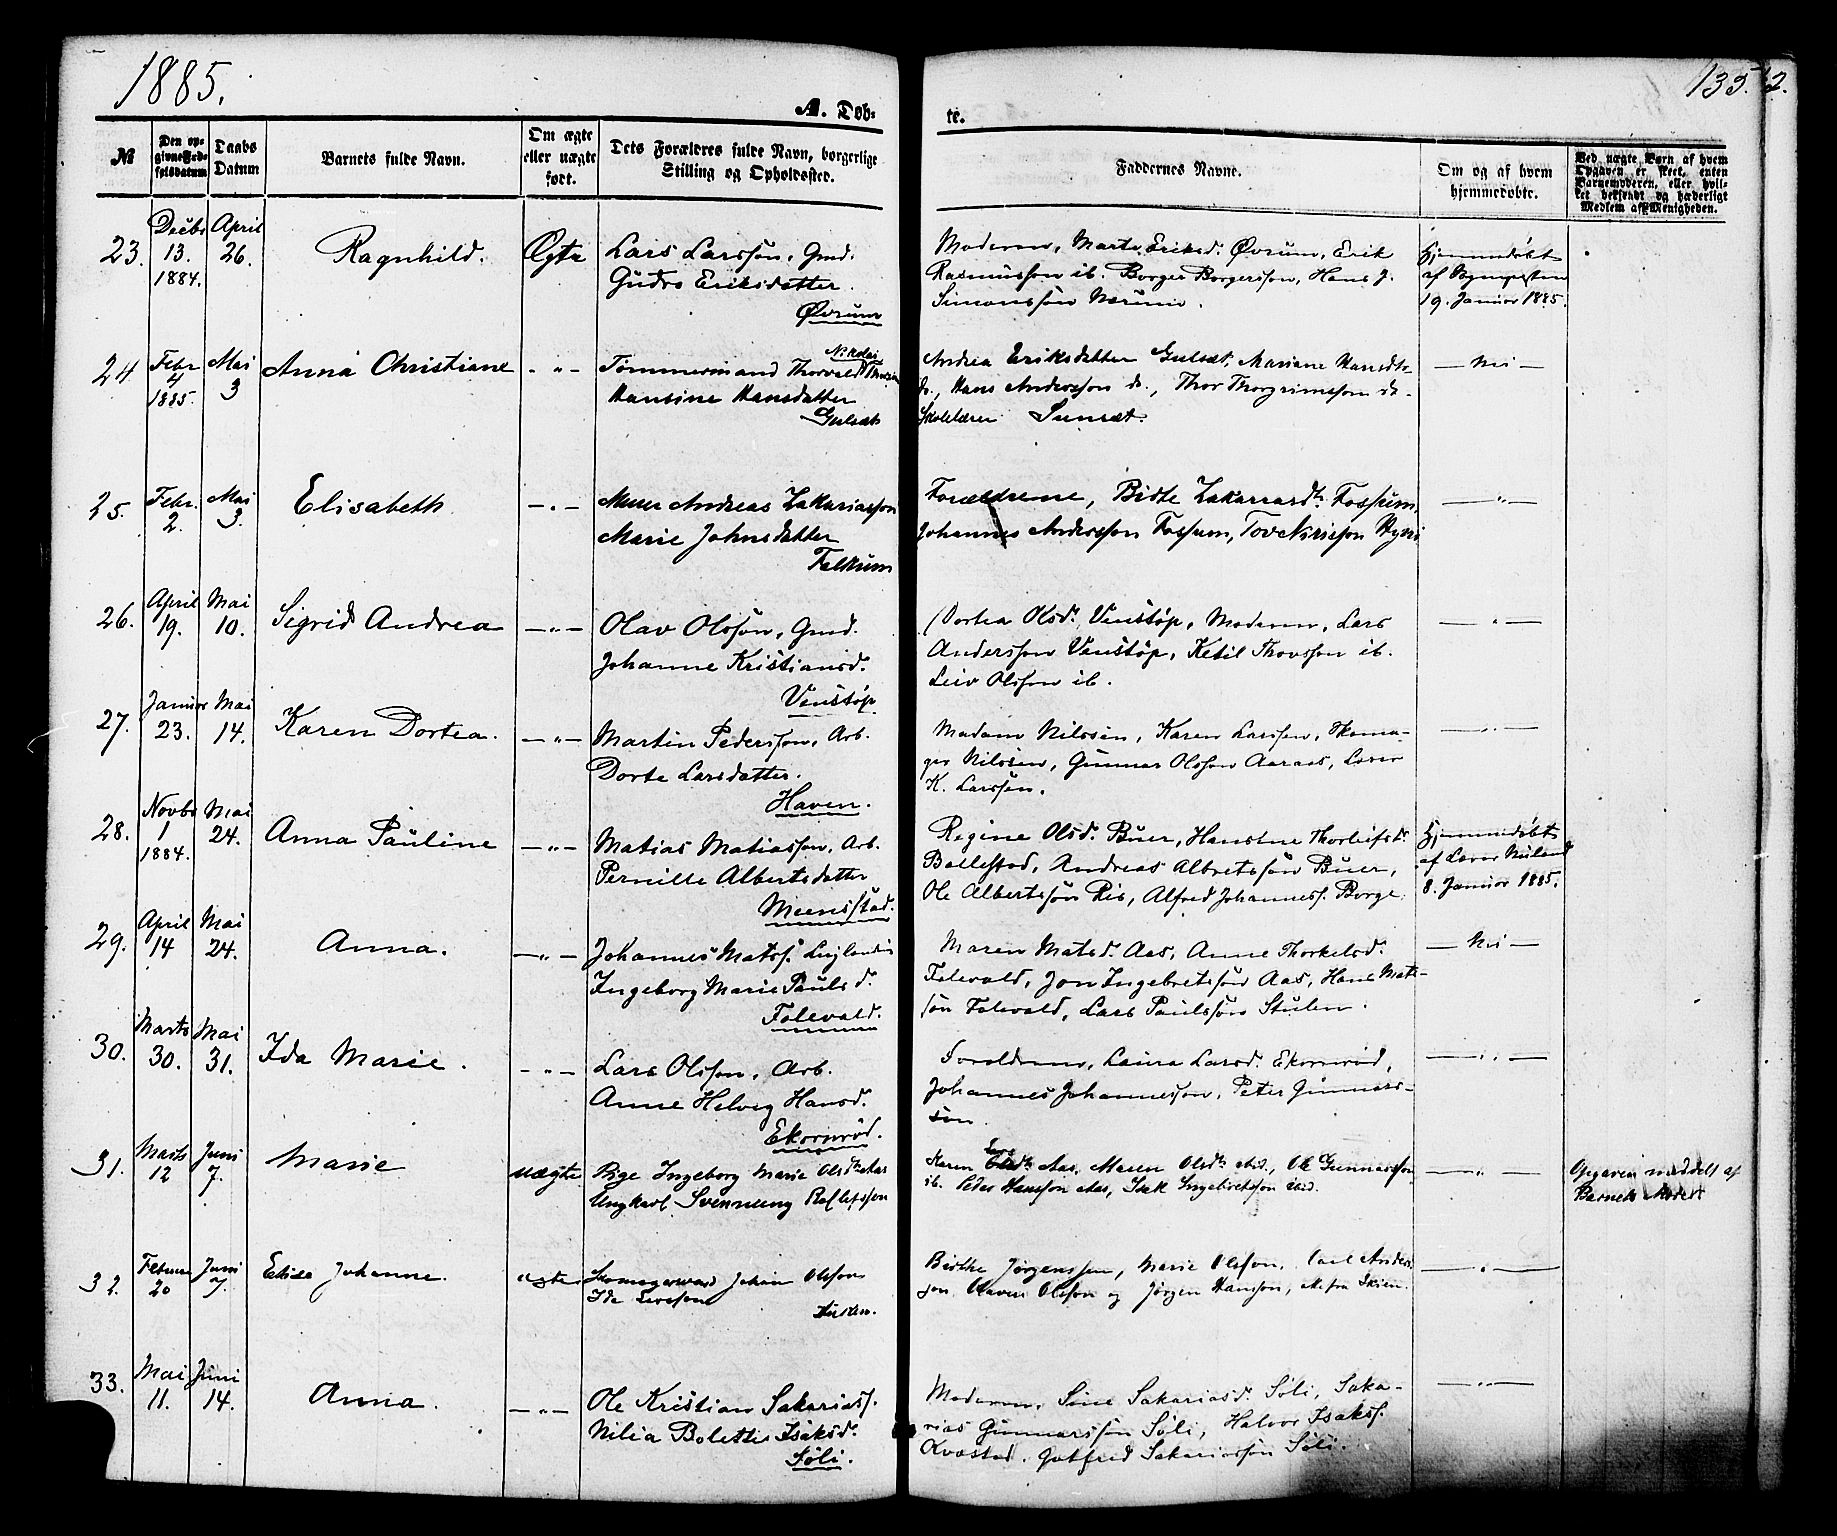 1885.
135.
2.
A. Døb-
te.
№
Den op-
givne Fød-
selsdatum
Daabs
Datum
Barnets fulde Navn.
Om ægte
eller uægte
født.
Dets Forældres fulde Navn, borgerlige
Stilling og Opholdssted.
Faddernes Navne.
Om og af hvem
hjemmedøbte.
Ved uægte Børn af hvem
Opgaven er skeet, enten
Barnemoderen, eller hvil-
ket bekjendt og hæderligt
Medlem af Menigheden.
23.
Decbr
13.
1884.
April
26.
Ragnhild.
Ægte
Lars Larssøn, Gmd.
Gudro Eriksdatter.
Øvrum
Moderen, Marte Eriksd. Øvrum, Erik
Rasmussøn ib. Borger Borgerssøn, Hans J.
Simonssøn Nærum.
Hjemmedøbt
af
19. Januar 1885.
24
Febr
4
1885.
Mai
3
Anna Christiane
- " -
Tømmermand Thorvald Nikolai
Hansine Hansdatter
Gulset
Andrea Eriksdatter Gulset, Mariane Hansdtr
do., Hans Anderssøn do., Thor Thorgrimssøn do.
Skolelærer
— Nei —
25.
Febr.
2.
Mai
3.
Elisabeth
- " -
Murer Andreas Zakariassøn
Marie Johnsdatter
Falkum
Forældrene, Birte Zakariasdtr. Fossum,
Johannes Anderssøn Fossum,
— " —
26.
April
19.
Mai
10.
Sigrid Andrea
— " —
Olav Olssøn, Gmd.
Johanne Kristiansd.
Venstøp
Dortea Olsd. Venstøp, Moderen, Lars
Anderssøn Venstøp, Ketil Thovssøn ib.
Leiv Olssøn ib.
— " —
27.
Januar
23.
Mai
14.
Karen Dortea.
— " —
Martin Pederssøn, Arb.
Dorte Larsdatter.
Haven.
Madam Nilssen, Karen Larssen, Skoma-
ger Nilssen, Gunnar Olssøn Aaraas, Lærer
K. Larssøn.
— " —
28.
Novbr
1
1884.
Mai
24.
Anna Pauline
— " —
Matias Matiassøn, Arb.
Pernille Albertsdatter
Meensstad.
Regine Olsd. Buer, Hanstne Thorleifsd.
Ballestad, Andreas Albretssøn Buer,
Ole Albertssøn Ris, Alfred Johanness. Borge.
Hjemmedøbt
af Lærer Niland
8. Januar 1885.
29.
April
14
Mai
24.
Anna.
— " —
Johannes Matss. Leilænding
Ingeborg Marie Paulsd.
Folevald.
Maren Matsd. Aas, Anne Thorkelsd.
Folevald, Jon Ingebretssøn Aas, Hans Mats-
søn Folevald, Lars Paulssøn Stulen.
— Nei —
30.
Marts
30.
Mai
31.
Ida Marie.
- " -
Lars Olssøn, Arb.
Anne Helvig Hansd.
Ekornrød.
Forældrene, Laura Larsd. Ekornrød,
Johannes Johannessøn, Peter Gunnars-
søn.
— " —
31.
Marts
12
Juni
7.
Marie
uægte
Pige Ingeborg Marie Olsdtr Aas
Ungkarl Svennung
Karen Aas, Maren Olsdtr ibid., Ole Gunnarssøn
ib. Peder Hanssøn Aas, Isak Ingebretssøn ibid.
— " —
Opgaven meddelt af
Barnets Moder
32.
Februar
20
Juni
7.
Johanne.
ægte
Skomagersvend Johan Olssøn
Ida
Birthe Jørgenssen, Marie Olssøn, Carl Anders-
søn, Olssøn og Jørgen Hanssøn, alle fra Skien.
— " —
33.
Mai
11.
Juni
14.
Anna.
— " —
Ole Kristian Sakariass.
Nilia Bolette Isaksd.
Søli.
Moderen, Sine Sakariasd. Søli, Saka-
rias Gunnarssøn Søli, Halvor Isakss.
Kvastad. Gotfred Sakariassøn Søli.
— " —